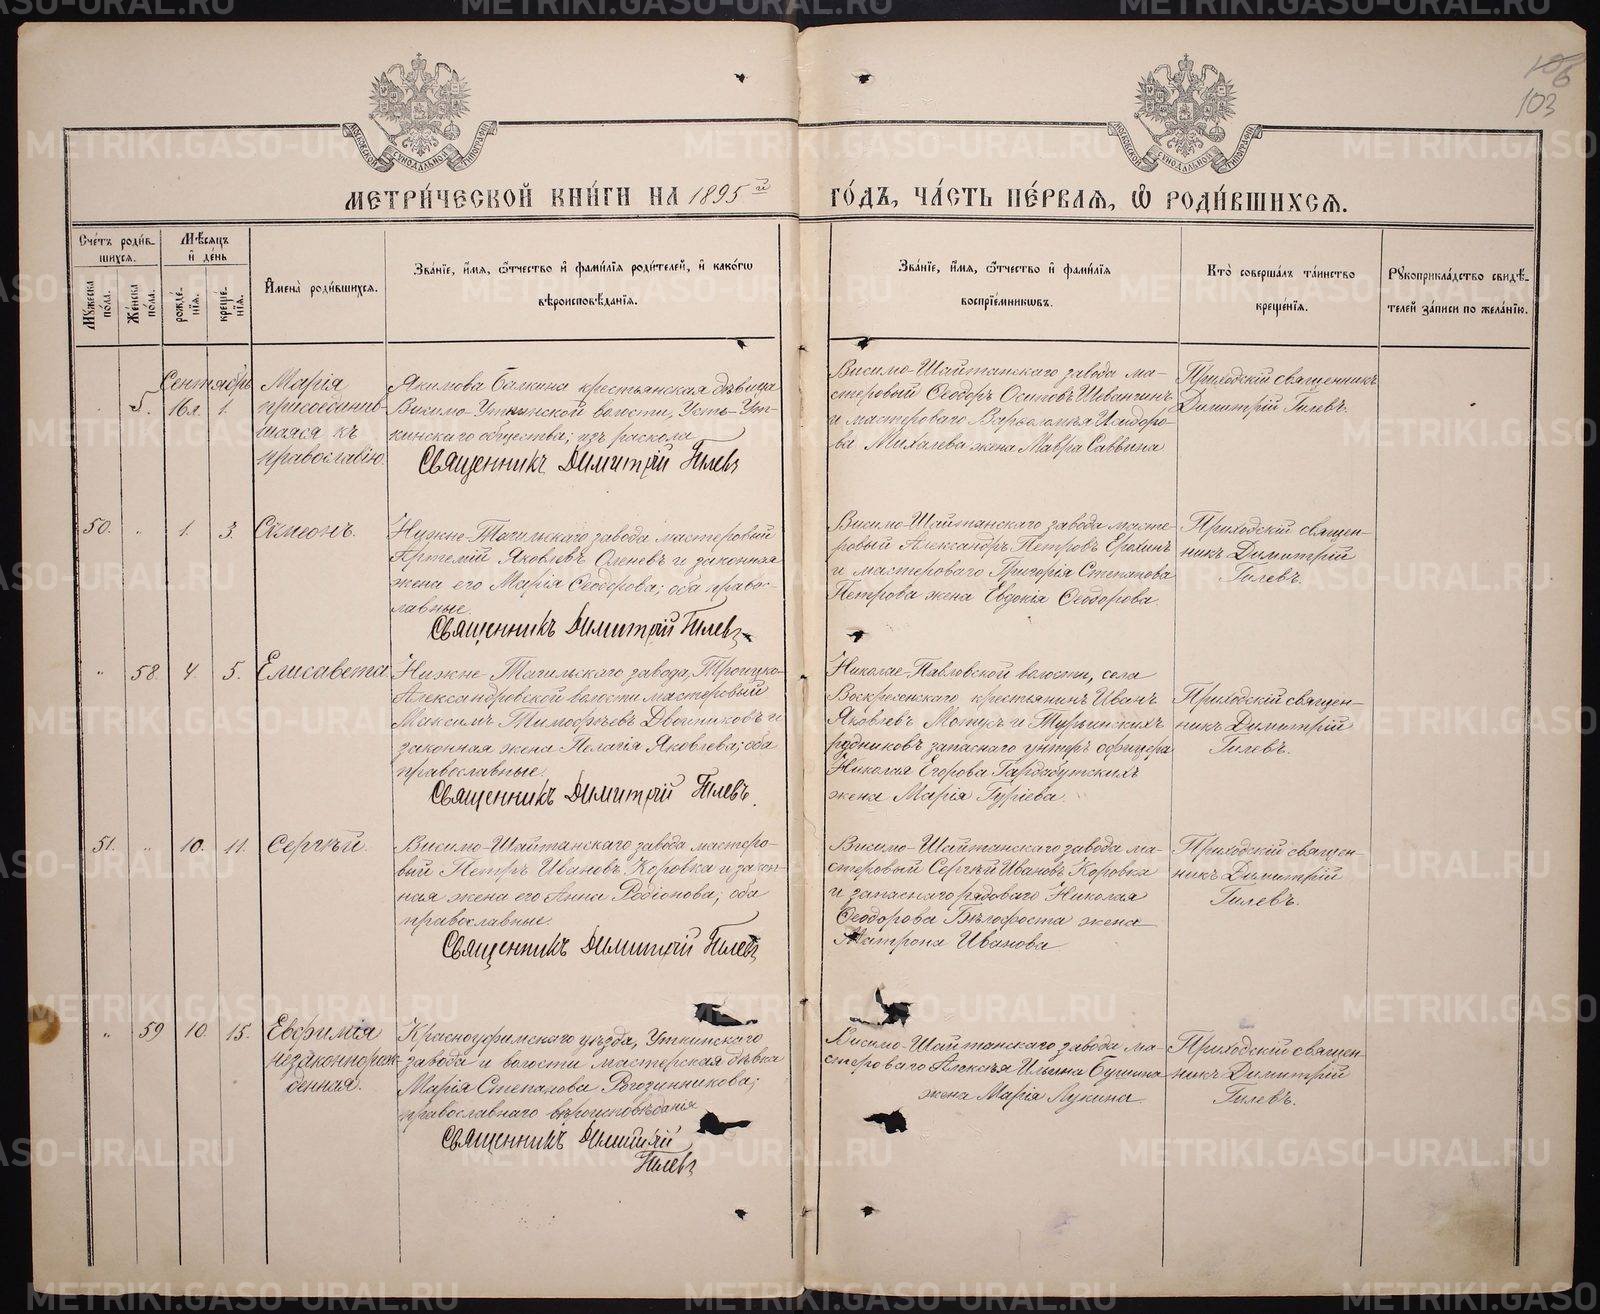 106
103
МОСКОВСКОЙ СѴНОДАЛЬНОЙ ТИПОГРАФІИ
МОСКОВСКОЙ СѴНОДАЛЬНОЙ ТИПОГРАФІИ
МЕТРИ́ЧЕСКОЙ КНИ́ГИ НА 1895й ГО́ДЪ, ЧА́СТЬ ПЕ́РВАѦ, Ѽ РОДИ́ВШИХСѦ.
Сче́тъ роди́в-
шихся.
Мѣ́сяцъ
и҆ де́нь
Мꙋ́жеска
по́ла.
Же́нска
по́ла.
рожде́-
нїѧ.
креще́-
нїѧ.
И҆мена̀ роди́вшихся.
Зва́нїе, и҆́мя, ѻ҆́тчество и҆ фами́лїя роди́телей, и҆ како́гѡ
вѣроисповѣ́данїя.
Зва́нїе, и҆́мя, ѻ҆́тчество и҆ фами́лїя
воспрїе́мникѡвъ.
Кто̀ соверша́лъ та́инство
креще́нїя.
Рꙋкоприкла́дство свидѣ́-
телей за́писи по жела́нїю.
Сентябрь
5. 16 л. 1.
Марія
присоединив-
шаяся къ
православію.
Якимова Балкина крестьянская дѣвица
Висимо-Уткинской волости, Усть-Ут-
кинскаго общества; изъ раскола
Священникъ Димитрій Гилевъ
Висимо-Шайтанскаго завода ма-
стеровой Ѳеодоръ Осиповъ
и мастероваго Варѳоломѣя Исидоро-
ва Михалева жена Мавра Саввина
Приходскій священникъ
Димитрій Гилевъ.
50. " 1. 3.
Сѵмеонъ.
Нижне-Тагильскаго завода мастеровый
Артемій Яковлевъ Оленевъ и законная
жена его Марія Ѳеодорова; оба право-
славные.
Священникъ Димитрій Гилевъ
Висимо-Шайтанскаго завода масте-
ровый Александръ Петровъ Ерохинъ
и мастероваго Григорія Степанова
Петрова жена Евдокія Ѳеодорова.
Приходскій священ-
никъ Димитрій
Гилевъ.
" 58 4. 5.
Елисавета
Нижне-Тагильскаго завода, Троицко-
Александровской волости мастеровый
Максимъ Тимоѳеевъ Двойниковъ и
законная жена Пелагія Яковлева; оба
православные.
Священникъ Димитрій Гилевъ.
Николае-Павловской волости, села
Воскресенскаго крестьянинъ Иванъ
Яковлевъ и Турьинскихъ
рудниковъ запаснаго унтеръ офицера
Николая Егорова
жена Марія Гуріева.
Приходскій священ-
никъ Димитрій
Гилевъ.
51. " 10. 11.
Сергѣй.
Висимо-Шайтанскаго завода мастеро-
вый Петръ Ивановъ Коровка и закон-
ная жена его Анна Родіонова; оба
православные.
Священникъ Димитрій Гилевъ
Висимо-Шайтанскаго завода ма-
стеровый Сергѣй Ивановъ Коровка
и запаснаго рядоваго Николая
Ѳеодорова Бѣлофоста жена
Матрона Иванова
Приходскій священ-
никъ Димитрій
Гилевъ.
" 59 10. 15.
Евфимія
незаконнорож-
денная.
Красноуфимскаго уѣзда, Уткинскаго
завода и волости мастерская дѣвка
Марія Степанова Рогозинникова;
православнаго вѣроисповѣданія
Священникъ Димитрій
Гилевъ
Висимо-Шайтанскаго завода ма-
стероваго Алексѣя Ильина Бушина
жена Марія Лукина.
Приходскій священ-
никъ Димитрій
Гилевъ.
METRIKI.GASO-URAL.RU